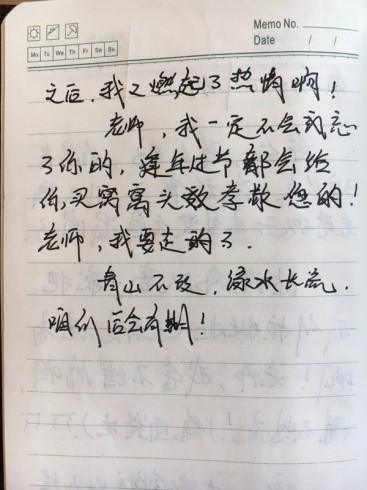 Memo No.
Mo Tu We Th Fr Sa Su
Date / /
之后,我又燃起了热情啊!
老师,我一定不会忘
了你的,逢年过节都会给
你买窝窝头孝敬您的!
老师,我要走的了.
青山不改,绿水长流.
咱们后会有期!